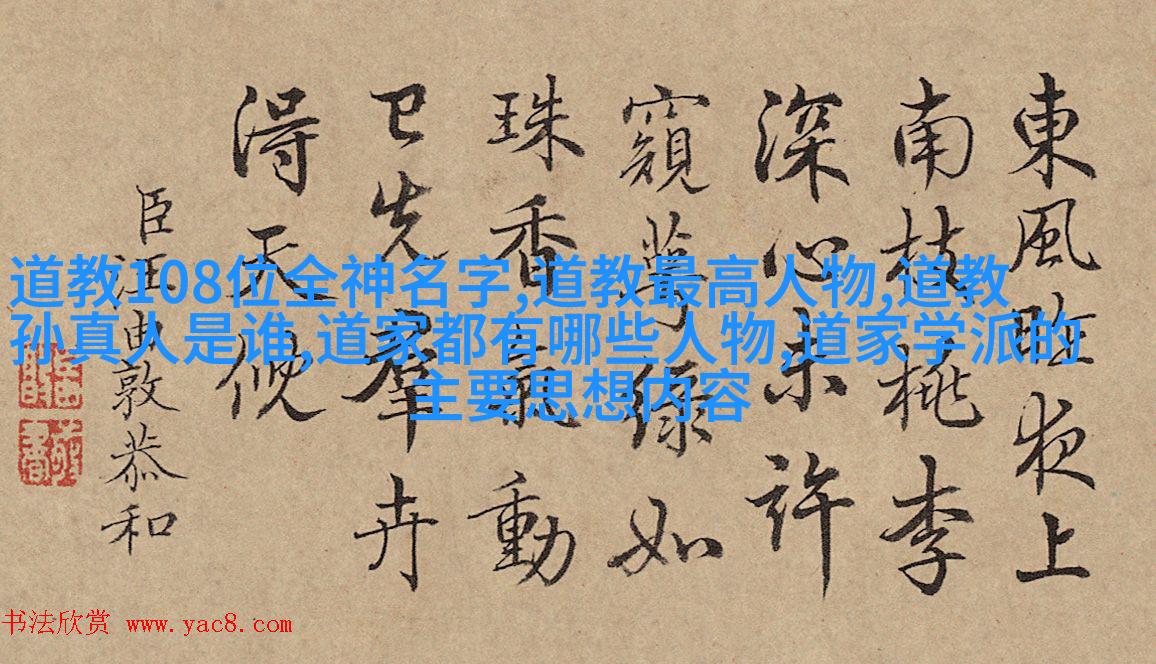 東風昨夜上
南枝桃李
深心未許
窺萼綠如
珠香氣動
已先羣卉
得天
臣汪由敦恭和
道教108位全神名字,道教最高人物,道教
孙真人是谁,道家都有哪些人物,道家学派的
主要思想内容
书法欣赏 www.yac8.com